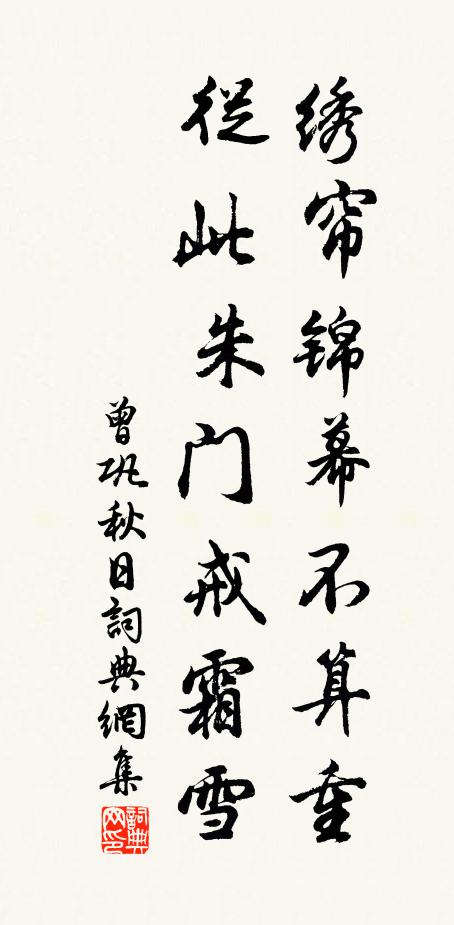 绣帘锦幕不算重
從此朱門戒霜雪
曾巩秋日詞典網集
詞典網印